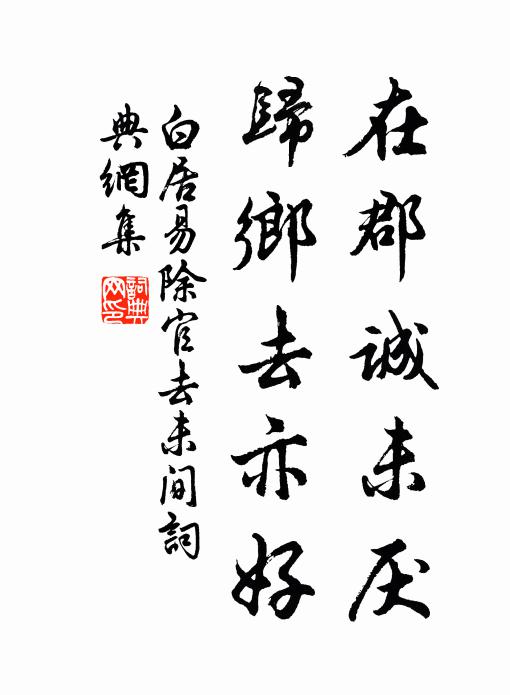 在郡誠未厌
歸鄉去亦好
白居易除官去未間詞
典網集
詞典网印